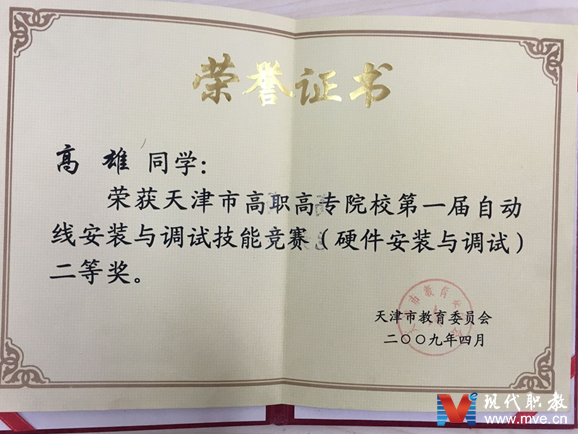 荣誉证书
高 雄 同学：
荣获天津市高职高专院校第一届自动
线安装与调试技能竞赛（硬件安装与调试）
二等奖。
天津市教育委员会
二〇〇九年四月
现代职教
www.mve.cn